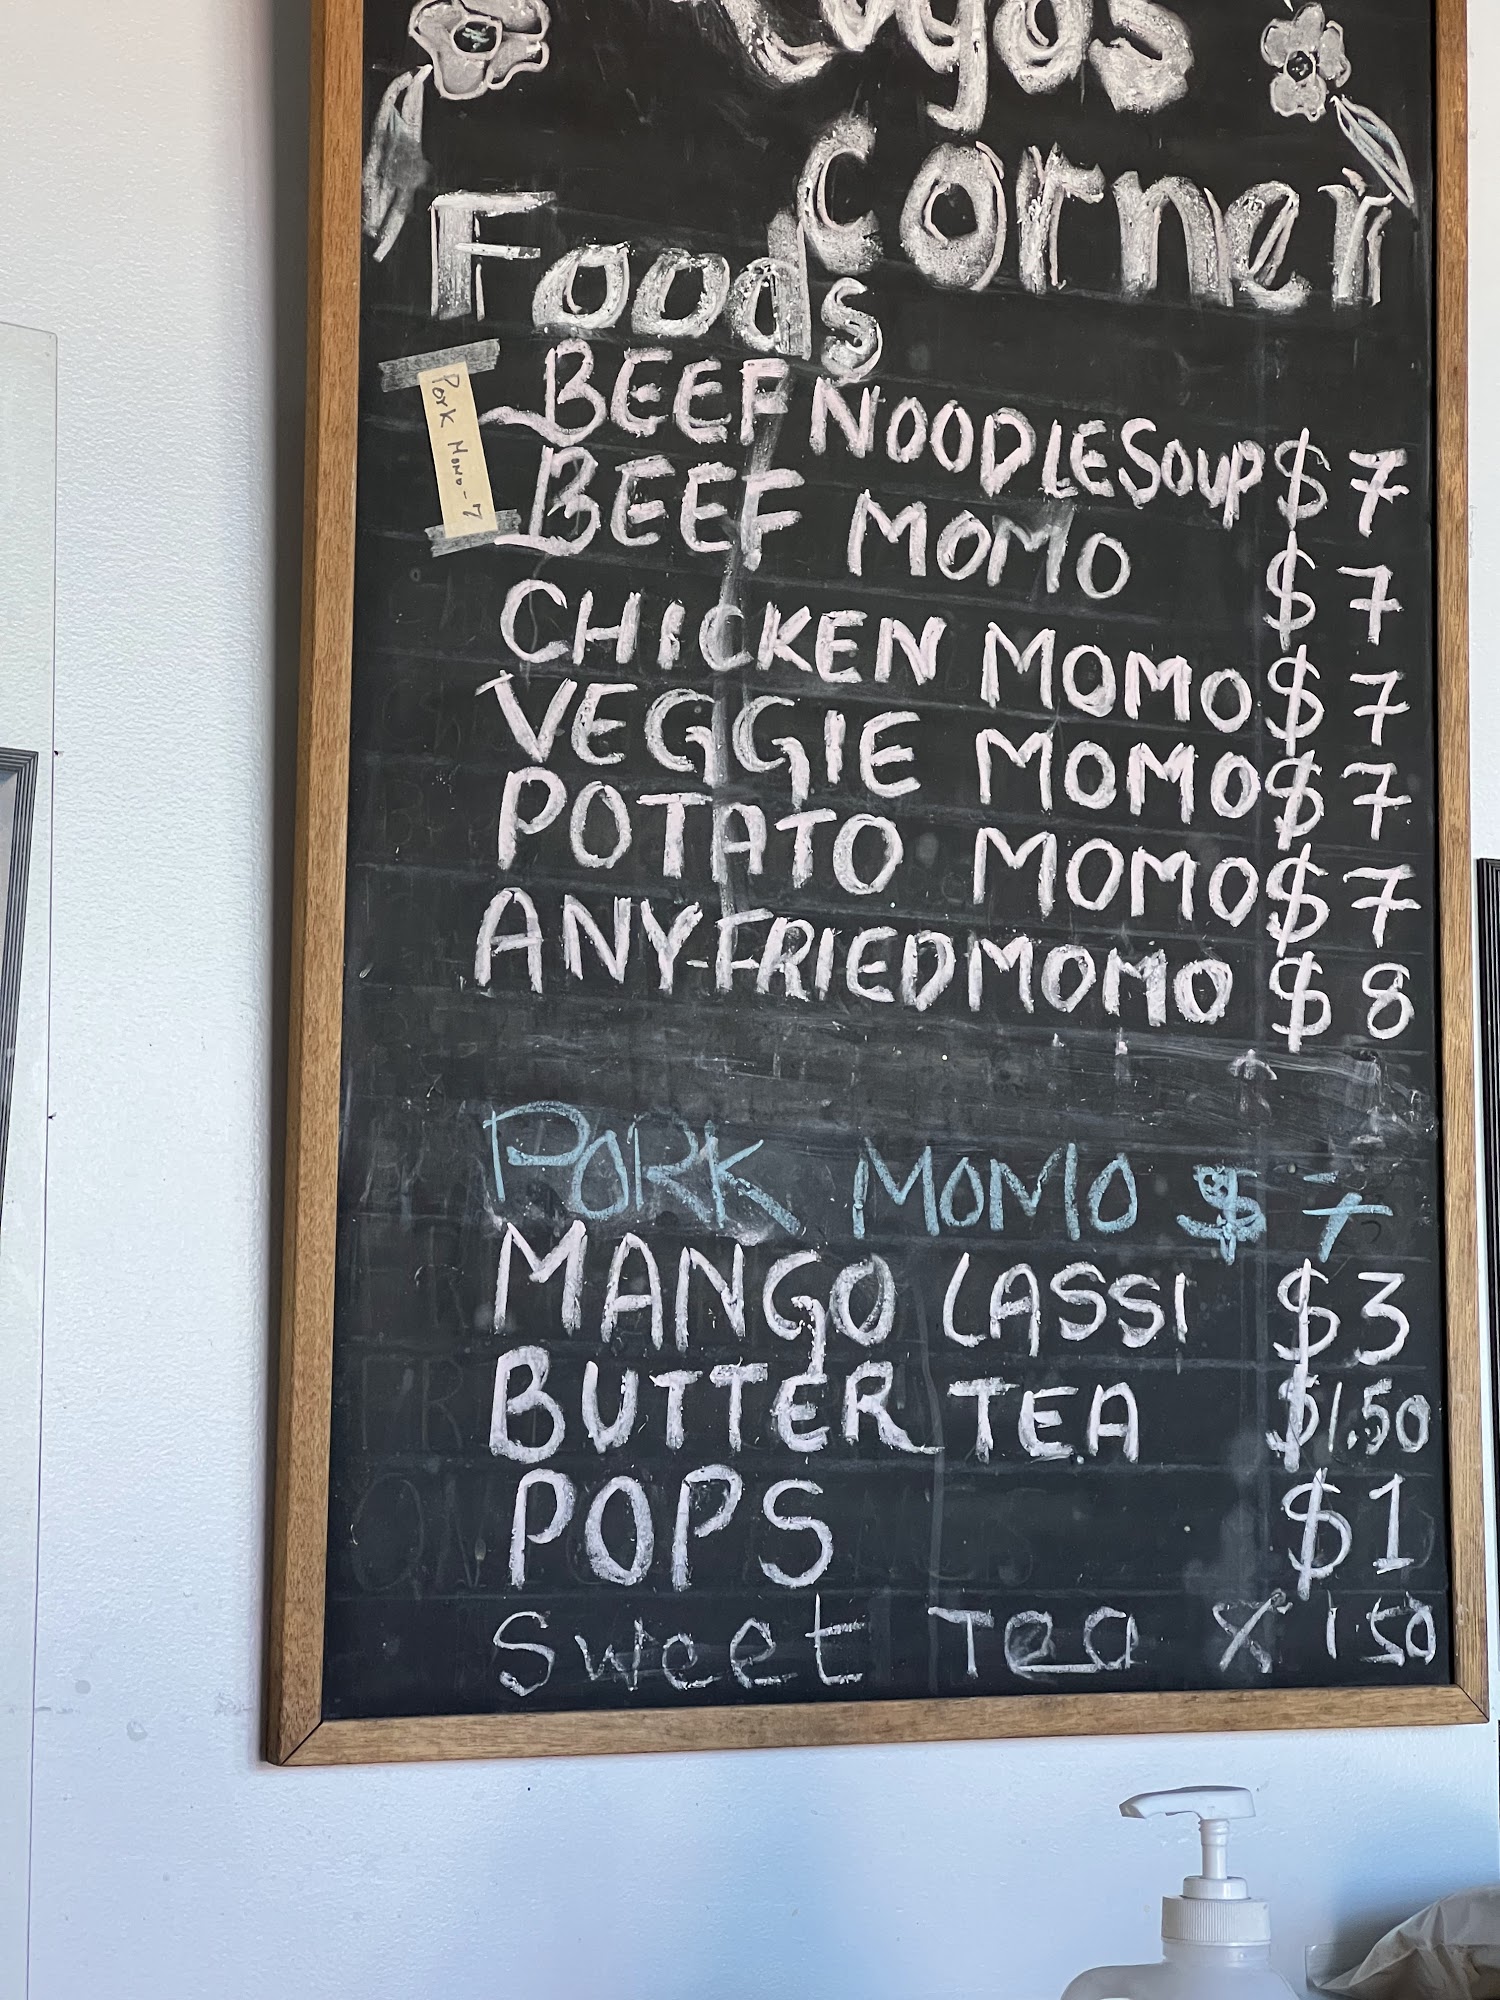 Corner
Foods
Pork Momo - 7
BEEF NOODLE SOUP $ 7
BEEF MOMO $ 7
CHICKEN MOMO $ 7
VEGGIE MOMO $ 7
POTATO MOMO $ 7
ANY-FRIED MOMO $ 8
PORK MOMO $ 7
MANGO LASSI $3
BUTTER TEA $1.50
POPS $1
Sweet Tea 1.50